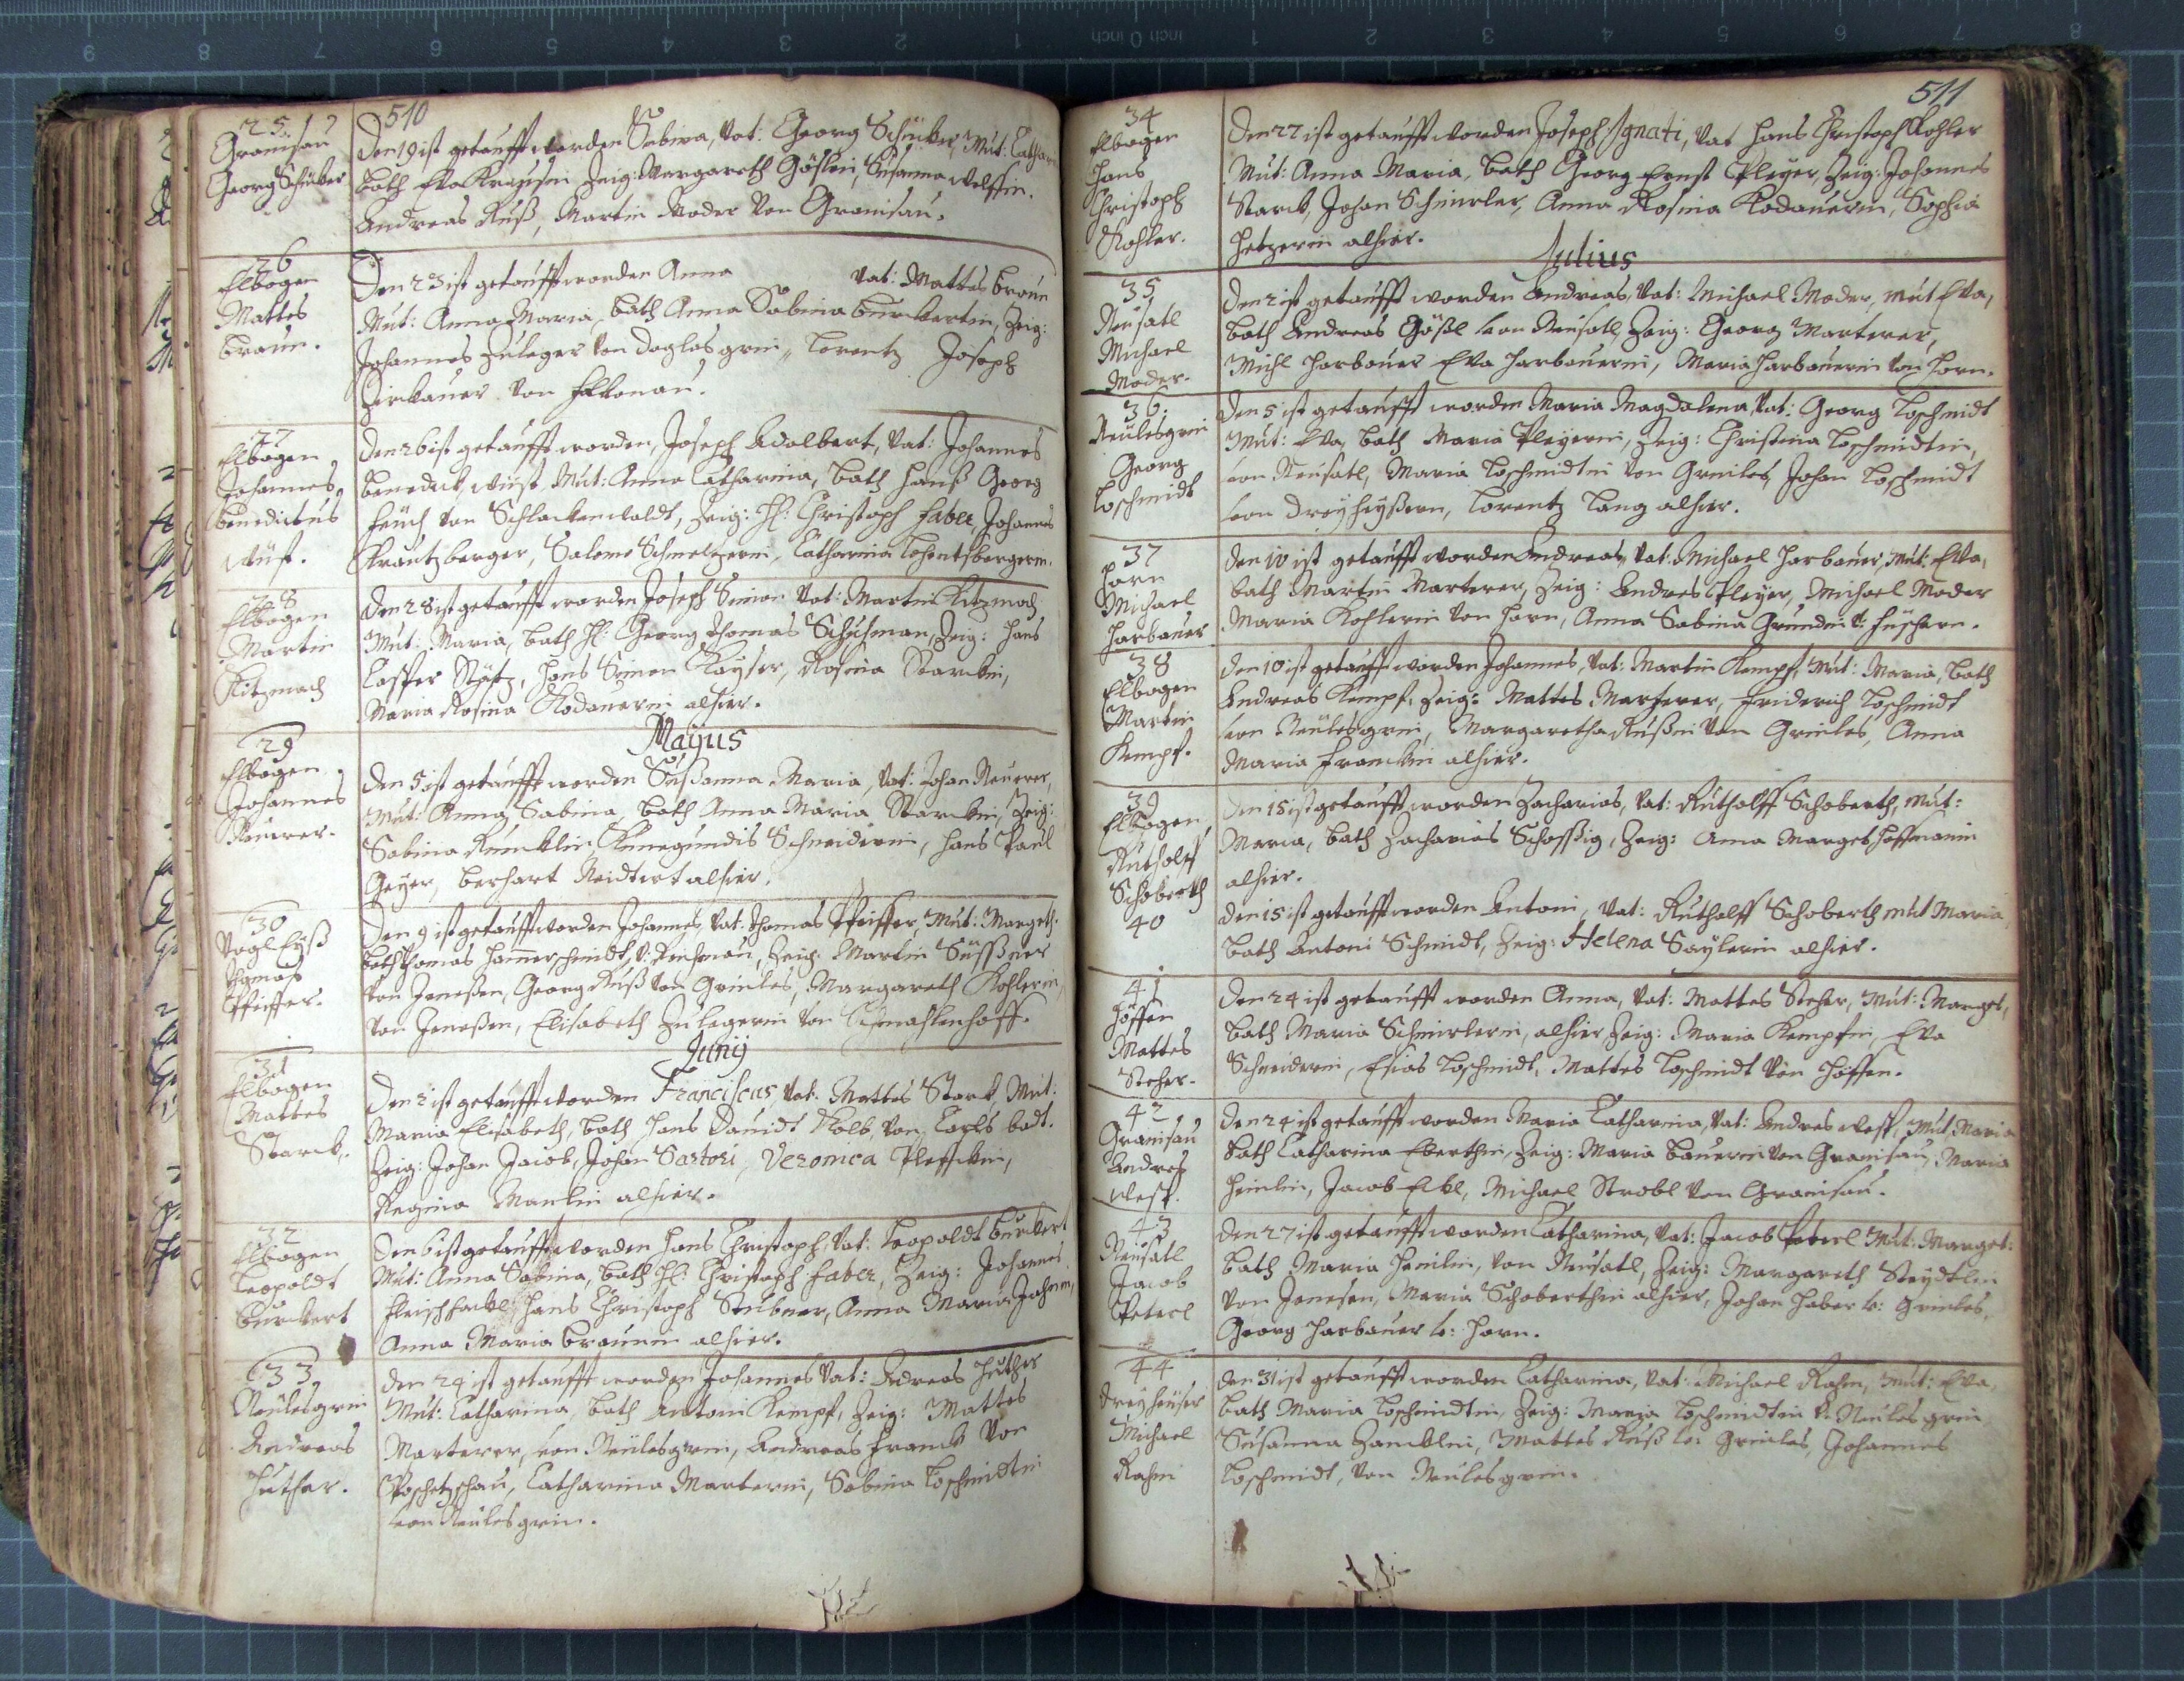 510
25
Granisau
Georg Schüker
Den 19 ist getaufft worden Sabina, Vat: Georg Schüker, Mut: Cathar
bath Eva Krausin Zeig: Margareth Gößlin, Susanna Welffin.
Andreas Ruß, Martin Moder von Granisau.
26
Elbogen
Mattes
Braun.
Den 23 ist getaufft worden Anna Vat: Mattes Braun
Mut: Anna Maria, bath Anna Sabina Burckertin, Zeig:
Johannes Zuleger von Doglasgrin, Lorentz Joseph
Zirckauer von
27
Elbogen
Johannes
Benedictus
Wüst.
Den 26 ist getaufft worden, Joseph Adalbert, Vat: Johannes
Benedict Wüst, Mut: Anna Catharina, bath Hanß Georg
von Schlackenwaldt, Zeig: H: Christoph Faber, Johannes
Krautzberger, Salome Schmeltzerin, Catharina
28
Elbogen
Martin
Kitzmach
Den 28 ist getaufft worden Joseph Simon Vat: Martin Kitzmach
Mut: Maria, bath H: Georg Thomas Schusman, Zeig: Hans
Casper Hans Simon Kayser, Rosina Starckin,
Maria Rosina Kodauerin alhier.
Mayus
29
Elbogen
Johannes
Neuerer.
Den 5 ist getaufft worden Sußanna Maria, Vat: Johan Neuerer,
Mut: Anna Sabina, bath Anna Maria Starckin, Zeig:
Sabina Kunegundis Schneiderin, Hans Paul
Geyer, alhier.
30
Thomas
Pfeiffer.
Den 9 ist getaufft worden Johannes, Vat: Thomas Pfeiffer, Mut: Margeth.
bath Thomas Hammerschmidt, Zeig: Martin Süssner
von Janessen, Georg Ruß von Grinles, Margareth Kohlerin,
von Janessen, Elisabeth Zulegerin von
Junij
31
Elbogen
Mattes
Starck.
Den 2 ist getaufft worden Franciscus Vat: Mattes Starck, Mut:
Maria Elisabeth, bath Hans Dauidt Kolb, von Carls badt.
Zeig: Johan Jacob, Johan Sartori, Veronica
Regina Manlin alhier.
32
Elbogen
Leopoldt
Burckert
Den 6 ist getaufft worden Hans Christoph, Vat: Leopoldt Burckert
Mut: Anna Sabina, bath H: Christoph Faber, Zeig: Johannes
Hans Christoph Stubner, Anna Maria
Anna Maria Braunin alhier.
33
Neulesgrin
Andreas
Huther.
Den 24 ist getaufft worden Johannes Vat: Andreas Huther
Mut: Catharina, bath Antoni Kempf, Zeig: Mattes
Marterer, von Neulesgrin, Andreas Franck von
Poschetzschau, Catharina Marterin, Sabina Loschmidtin
von Neulesgrin.
511
34
Elbogen
Hans
Christoph
Kohler.
Den 22 ist getaufft worden Joseph Ignati, Vat Hans Christoph Kohler
Mut: Anna Maria, bath Georg Ernst Pleyer, Zeig: Johannes
Starck, Johan Schmirler, Anna Rosina Kodauerin, Sophia
Hetzerin alhier.
Julius
35
Neusatl
Michael
Moder.
Den 2 ist getaufft worden Andreas, Vat: Michael Moder, Mut Eva,
bath Andreas Gößl von Neusatl, Zeig: Georg Marterer,
Michl Harbauer Eva Harbauerin, Maria Harbauerin von Horn.
36
Neulesgrin
Georg
Loschmidt
Den 5 ist getaufft worden Maria Magdalena, Vat: Georg Loschmidt
Mut: Eva, bath Maria Pleyerin, Zeig: Christina Loschmidtin,
von Neusatl, Maria Loschmidtin von Grinles, Johan Loschmidt
von Dreyheyßern, Lorentz Lang alhier.
37
Horn
Michael
Harbauer
Den 10 ist getaufft worden Andreas, Vat: Michael Harbauer, Mut: Eva,
bath Martin Marterer, Zeig: Andres Pleyer, Michael Moder
Maria Kohlerin von Horn, Anna Sabina Grundin
38
Elbogen
Martin
Kempf.
Den 10 ist getaufft worden Johannes, Vat: Martin Kempf, Mut: Maria, bath
Andreas Kempf, Zeig: Mattes Marterer, Friderich Loschmidt
von Neulesgrin, Margaretha Rußin von Grinles, Anna
Maria Franckin alhier.
39
Elbogen
Rutholff
Schoberth
40
Den 15 ist getaufft worden Zacharias, Vat: Rutholff Schoberth, Mut:
Maria, bath Zacharias Schossig, Zeig: Anna Marget Hoffmanin
alhier.
Den 15 ist getaufft worden Antoni, Vat: Rutholff Schoberth Mut Maria
bath Antoni Schmidt, Zeig: Helena Saylerin alhier.
41
Hoffen
Mattes
Steher.
Den 24 ist getaufft worden Anna, Vat: Mattes Steher, Mut: Marget,
bath Maria Schmirlerin, alhier Zeig: Maria Kempfin, Eva
Schneiderin, Elias Loschmidt, Mattes Loschmidt von Hoffen.
42
Granisau
Andres
Den 24 ist getaufft worden Maria Catharina, Vat: Andres Mut Maria
bath Catharina Eberthin, Zeig: Maria Bauerin von Granisau, Maria
Heinlin, Jacob Michael Strobl von Granisau.
43
Neusatl
Jacob
Peterl
Den 27 ist getaufft worden Catharina, Vat: Jacob Peterl Mut: Marget:
bath Maria Heinlin, von Neusatl, Zeig: Margareth
von Janesen, Maria Schoberthin alhier, Johan Haber v: Grinles,
Georg Harbauer v: Horn.
44
Dreyheuser
Michael
Rahm
Den 31 ist getaufft worden Catharina, Vat: Michael Rahm, Mut: Eva
bath Maria Loschmidtin, Zeig: Maria Loschmidtin v: Neulesgrin
Susanna Mattes Ruß v: Grinles, Johannes
Loschmidt, von Neulesgrin.